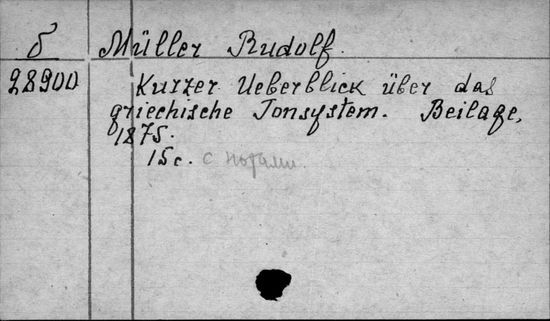 б Müller Rudolf.
28900 Kurzer Ueberblick über das
griechische Tonsystem. Beilage,
1875.
15 с. с нотами.